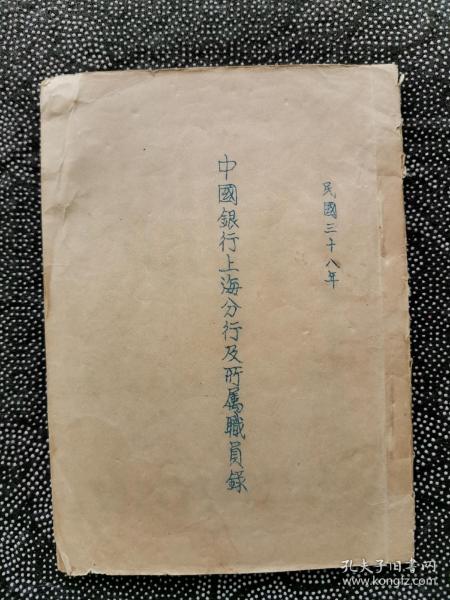 民國三十八年
中國銀行上海分行及所属職員錄
孔夫子旧书网
www.kongfz.com